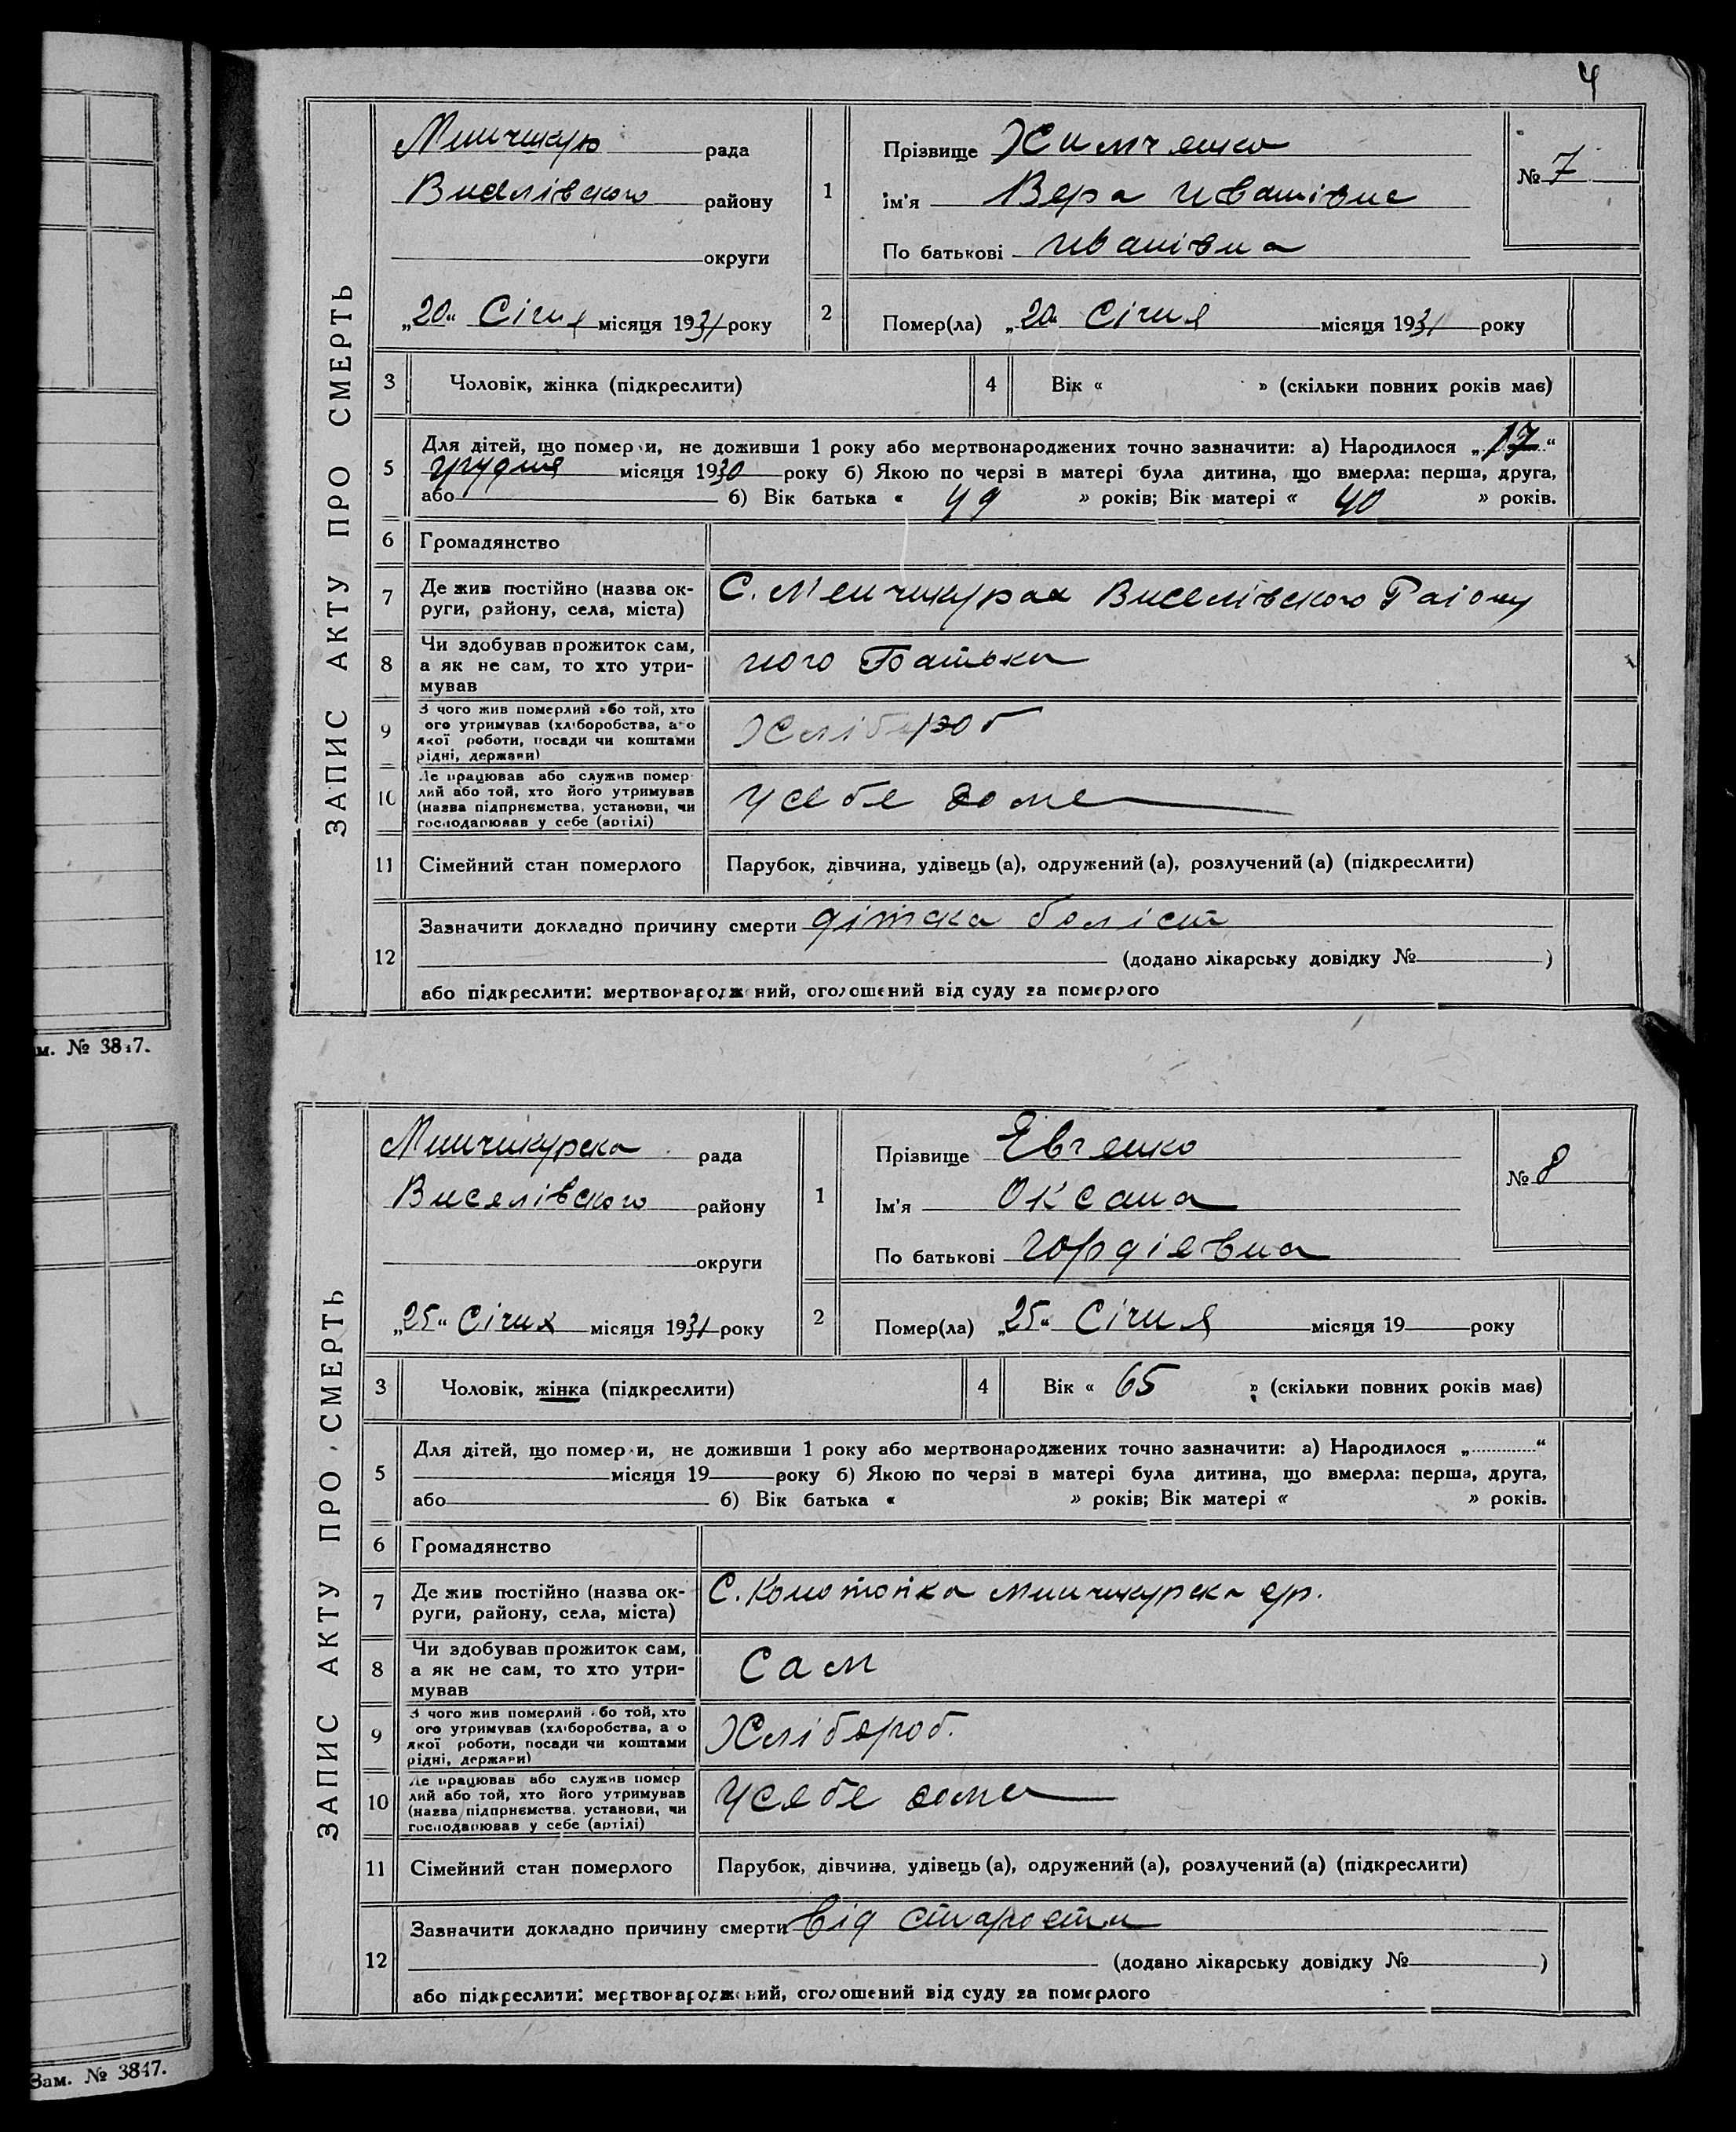 4
ЗАПИС АКТУ ПРО СМЕРТЬ
Минчикур рада
Виселівского району
округи
„20“ Січня місяця 1931 року
1
Прізвище Химченко
ім'я Вера Иванівна
По батькові Иванівна
№ 7
2
Помер(ла) „20“ Січня місяця 1931 року
3 Чоловік, жінка (підкреслити)
4 Вік « » (скільки повних років має)
5
Для дітей, що померли, не доживши 1 року або мертвонароджених точно зазначити: а) Народилося „17“
грудня місяця 1930 року б) Якою по черзі в матері була дитина, що вмерла: перша, друга,
або б) Вік батька « 49 » років; Вік матері « 40 » років.
6 Громадянство
7
Де жив постійно (назва ок-
руги, району, села, міста)
С. Менчикурах Виселівского Раіону
8
Чи здобував прожиток сам,
а як не сам, то хто утри-
мував
його Батько
9
З чого жив померлий або той, хто
ого утримував (хліборобства, або
якої роботи, посади чи коштами
рідні, держави)
Хлібороб
10
Де працював або служив помер
лий або той, хто його утримував
(назва підприємства, установи, чи
господарював у себе (артілі)
У себе дома
11 Сімейний стан померлого
Парубок, дівчина, удівець (а), одружений (а), розлучений (а) (підкреслити)
12
Зазначити докладно причину смерти дітска болість
(додано лікарську довідку № )
або підкреслити: мертвонароджений, оголошений від суду за померлого
м. № 3847.
ЗАПИС АКТУ ПРО СМЕРТЬ
Минчикурска рада
Виселівского району
округи
„25“ Січня місяця 1931 року
1
Прізвище Евченко
Ім'я Оксана
По батькові Гордіевна
№ 8
2
Помер(ла) „25“ Січня місяця 19 року
3 Чоловік, жінка (підкреслити)
4 Вік « 65 » (скільки повних років має)
5
Для дітей, що померли, не доживши 1 року або мертвонароджених точно зазначити: а) Народилося „ “
місяця 19 року б) Якою по черзі в матері була дитина, що вмерла: перша, друга,
або б) Вік батька « » років; Вік матері « » років.
6 Громадянство
7
Де жив постійно (назва ок-
руги, району, села, міста)
С. Конотопка Минчикурска с/р.
8
Чи здобував прожиток сам,
а як не сам, то хто утри-
мував
Сам
9
З чого жив померлий або той, хто
ого утримував (хліборобства, або
якої роботи, посади чи коштами
рідні, держави)
Хлібороб.
10
Де працював або служив помер
лий або той, хто його утримував
(назва підприємства, установи, чи
господарював у себе (артілі)
У себе дома
11 Сімейний стан померлого
Парубок, дівчина, удівець (а), одружений (а), розлучений (а) (підкреслити)
12
Зазначити докладно причину смерти від старости
(додано лікарську довідку № )
або підкреслити: мертвонароджений, оголошений від суду за померлого
Зам. № 3847.